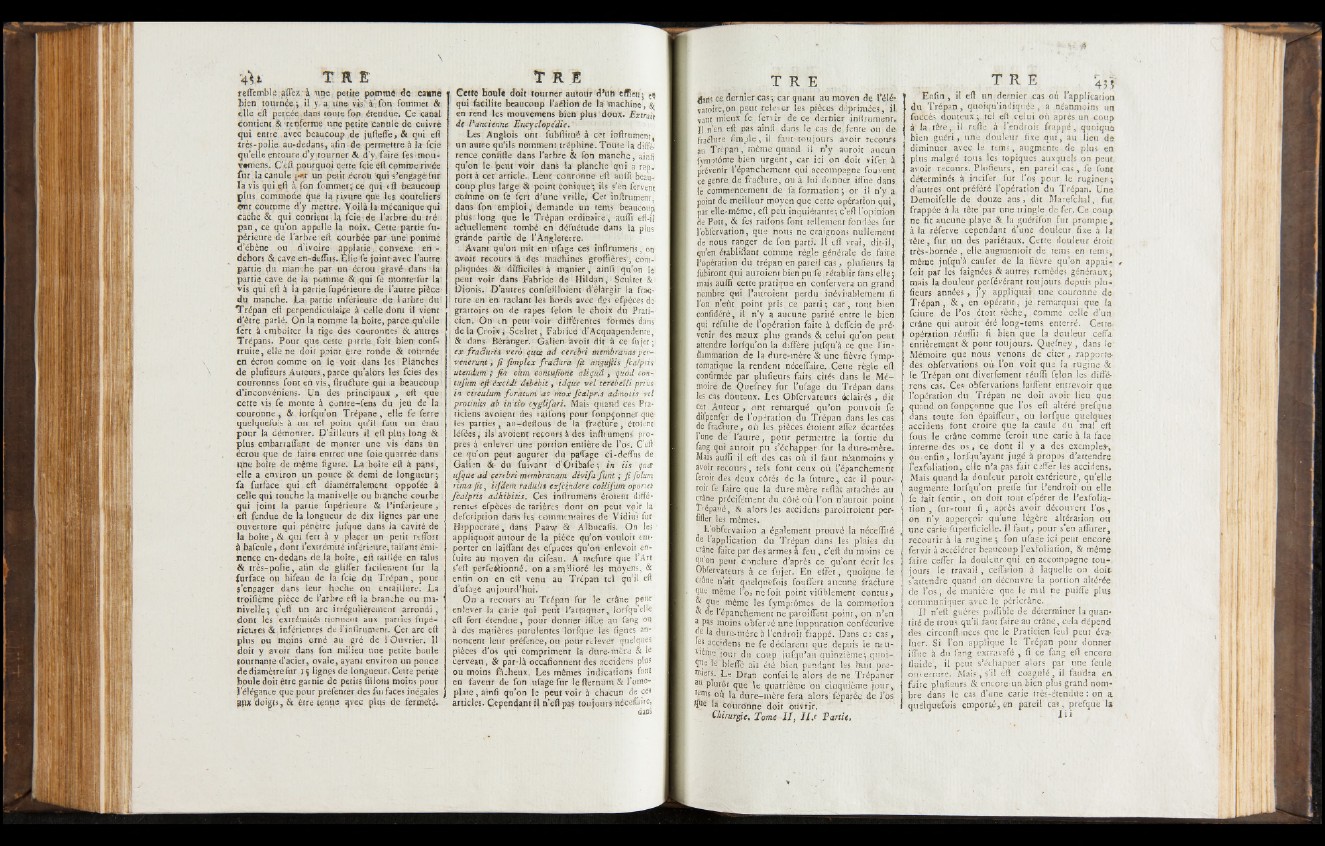 432 TRE
reſſemble aſſez à une petite pomme de canne
bien tournée; il y a une vis à ſon ſommet &
elle eſt percée dans toute ſon étendue. Ce canal
contient & renferme une petite canule de cuivre
qui entre avec beaucoup de juſteſſe, & qui eſt
très-polie au-dedans, afin de permettre à la ſcie
qu'elle entoure d'y tourner & d'y faire ſes mou-
vemens. C'eſt pourquoi cette ſcie eſt comme rivée
ſur la canule par un petit écrou qui s'engage ſur
la vis qui eſt à ſon ſommet; ce qui eſt beaucoup
plus commode que la rivure que les couteliers
ont coutume d'y mettre. Voilà la mécanique qui
cache & qui contient la ſcie de l'arbre du tré-
pan, ce qu'on appelle la noix. Cette partie ſu-
périeure de l'arbre eſt courbée par une pomme
d'ébène ou d'ivoire applatie, convexe en-
dehors & cave en-deſſus. Elle ſe joint avec l'autre
partie du manche par un écrou gravé dans la
partie cave de la pomme & qui ſe monte ſur la
vis qui eſt à la partie ſupérieure de l'autre pièce
du manche. La partie inférieure de l'arbre du
Trépan eſt perpendiculaire à celle dont il vient
d'être parlé. On la nomme la boîte, parce qu'elle
ſert à emboiter la tige des couronnes & autres
Trépans. Pour que cette partie ſoit bien conſ-
truite, elle ne doit point être ronde & tournée
en écrou comme on le voit dans les Planches
de pluſieurs Auteurs, parce qu'alors les ſcies des
couronnes ſont en vis, ſtructure qui a beaucoup
d'inconvéniens. Un des principaux, eſt que
cette vis ſe monte à contre-ſens du jeu de la
couronne, & lorſqu'on Trépane, elle ſe ſerre
quelquefois à un tel point qu'il faut un étau
pour la démonter. D'ailleurs il eſt plus long &
plus embarraſſant de monter une vis dans ſon
écrou que de faire entrer une ſoie quarrée dans
une boîte de même figure. La boîte eſt à pans,
elle a environ un pouce & demi de longueur;
ſa ſurface qui eſt diamétralement oppoſée à
celle qui touche la manivelle ou branche courbe
qui joint la partie ſupérieure & l'inférieure,
eſt fendue de la longueur de dix lignes par une
ouverture qui pénètre juſque dans la cavité de
la boîte, & qui ſert à y placer un petit reſſort
à baſcule, dont l'extrémité inférieure, faiſant émi-
nence en-dedans de la boîte, eſt taillée en talus
& très-polie, afin de gliſſer facilement ſur la
ſurface ou biſeau de la ſcie du Trépan, pour
s'engager dans leur hoche ou entaillure. La
troiſième pièce de l'arbre eſt la branche ou ma-
nivelle; c'eſt un arc irrégulièrement arrondi,
dont les extrémités tiennent aux parties ſupé-
rieures & inférieures de l'inſtrument. Cet arc eſt
plus ou moins orné au gré de l'Ouvrier. Il
doit y avoir dans ſon milieu une petite boule
tournante d'acier, ovale, ayant environ un pouce
de diamètre ſur 15 lignes de longueur. Cette petite
boule doit être garnie de petits ſillons moins pour
l'élégance que pour préſenter des ſurfaces inégales
aux doigts, & être tenue avec plus de fermeté.
TRE
Cette boule doit tourner autour d'un eſſieu; ce
qui facilite beaucoup l'action de la machine, &
en rend les mouvemens bien plus doux. Extrait
de l'ancienne Encyclopédie.
Les Anglois ont ſubſtitué à cet inſtrument,
un autre qu'ils nomment tréphine. Toute la diffé-
rence conſiſte dans l'arbre & ſon manche, ainſi
qu'on le peut voir dans la planche qui a rap-
port à cet article. Leur couronne eſt auſſi beau-
coup plus large & point conique; ils s'en ſervent
comme on ſe ſert d'une vrille. Cet inſtrument,
dans ſon emploi, demande un tems beaucoup
plus long que le Trépan ordinaire, auſſi eſt-il
actuellement tombé en déſuétude dans la plus
grande partie de l'Angleterre.
Avant qu'on mît en uſage ces inſtrumens, on
avoit recours à des machines groſſières, com-
pliquées & difficiles à manier, ainſi qu'on le
peut voir dans Fabrice de Hildan, Scultet &
Dionis. D'autres conſeilloient d'élargir la frac-
ture en en raclant les bords avec des eſpèces de
grattoirs ou de rapes ſelon le choix du Prati-
cien. On en peut voir différentes formes dans
de la Croix, Scultet, Fabrice d'Acquapendente,
& dans Béranger. Galien avoit dit à ce ſujet;
ex fracturis verò quæ ad cerebri membranas per-
venerunt, ſi ſimplex fractura ſit anguſtis ſcalpris
utendum; ſin cum contuſione aliquâ, quod con-
tuſum eſt excidi debebit, idque vel terebellis prius
in circulum foratum ac mox ſcalpris admotis vel
protinùs ab initio cyglifari. Mais quand ces Pra-
ticiens avoient des raiſons pour ſoupçonner que
les parties, au-deſſous de la fracture, étoient
léſées, ils avoient recours à des inſtrumens pro-
pres à enlever une portion entière de l'os. C'eſt
ce qu'on peut augurer du paſſage ci-deſſus de
Galien & du ſuivant d'Oribaſe; in iis quæ
uſque ad cerebri membranam diviſa ſunt; ſi ſolum
rima ſit, iiſdem radulis exſcindere colliſum oportet
ſcalpris adhibitis. Ces inſtrumens étoient diffé-
rentes eſpèces de tarières dont on peut voir la
deſcription dans les commentaires de Vidius ſur
Hippocrate, dans Paræ & Albucaſis. On les
appliquoit autour de la pièce qu'on vouloit em-
porter en laiſſant des eſpaces qu'on enlevoit en-
ſuite au moyen du ciſeau. A meſure que l'Art
s'eſt perfectionné, on a amélioré les moyens, &
enfin on en eſt venu au Trépan tel qu'il eſt
d'uſage aujourd'hui.
On a recours au Trépan ſur le crâne pour
enlever la carie qui peut l'attaquer, lorſqu'elle
eſt fort étendue, pour donner iſſue au ſang ou
à des matières purulentes lorſque les ſignes an-
noncent leur préſence, ou pour relever quelques
pièces d'os qui compriment la dure-mère & le
cerveau, & par-là occaſionnent des accidens plus
ou moins fâcheux. Les mêmes indications ſont
en faveur de ſon uſage ſur le ſternum & l'omo-
plate, ainſi qu'on le peut voir à chacun de ces
articles. Cependant il n'eſt pas toujours néceſſaire,
dans
TRE
dans ce dernier cas; car quant au moyen de l'élé-
vatoire, on peut relever les pièces déprimées, il
vaut mieux ſe ſervir de ce dernier inſtrument.
Il n'en eſt pas ainſi dans le cas de fente ou de
fracture ſimple, il faut toujours avoir recours
au Trépan, même quand il n'y auroit aucun
ſymptôme bien urgent, car ici on doit viſer à
prévenir l'épanchement qui accompagne ſouvent
ce genre de fracture, ou à lui donner iſſue dans
le commencement de ſa formation; or il n'y a
point de meilleur moyen que cette opération qui,
par elle-même, eſt peu inquiétante; c'eſt l'opinion
de Pott, & ſes raiſons ſont tellement fondées ſur
l'obſervation, que nous ne craignons nullement
de nous ranger de ſon parti. Il eſt vrai, dit-il,
qu'en établiſſant comme règle générale de faire
l'opération du trépan en pareil cas, pluſieurs la
ſubiront qui auroient bien pu ſe rétablir ſans elle;
mais auſſi cette pratique en conſervera un grand
nombre qui l'auroient perdu inévitablement ſi
l'on n'eût point pris ce parti; car, tout bien
conſidéré, il n'y a aucune parité entre le bien
qui réſulte de l'opération faite à deſſein de pré-
venir des maux plus grands & celui qu'on peut
attendre lorſqu'on la diffère juſqu'à ce que l'in-
flammation de la dure-mère & une fièvre ſymp-
tomatique la rendent néceſſaire. Cette règle eſt
confirmée par pluſieurs faits cités dans le Mé-
moire de Queſney ſur l'uſage du Trépan dans
les cas douteux. Les Obſervateurs éclairés, dit
cet Auteur, ont remarqué qu'on pouvoit ſe
diſpenſer de l'opération du Trépan dans les cas
de fracture, où les pièces étoient aſſez écartées
l'une de l'autre, pour permettre la ſortie du
ſang qui auroit pu s'échapper ſur la dure-mère.
Mais auſſi il eſt des cas où il faut néanmoins y
avoir recours, tels ſont ceux où l'épanchement
ſeroit des deux côtés de la ſuture, car il pour-
roit ſe faire que la dure-mère reſtât attachée au
crâne préciſément du côté où l'on n'auroit point
Trépané, & alors les accidens paroîtroient per-
ſiſter les mêmes.
L'obſervation a également prouvé la néceſſité
de l'application du Trépan dans les plaies du
crâne faite par des armes à feu, c'eſt du moins ce
qu'on peut conclure d'après ce qu'ont écrit les
Obſervateurs à ce ſujet. En effet, quoique le
crâne n'ait quelquefois ſouffert aucune fracture
que même l'os ne ſoit point viſiblement contus,
& que même les ſymptômes de la commotion
& de l'épanchement ne paroiſſent point, on n'en
a pas moins obſervé une ſuppuration conſécutive
de la dure-mère à l'endroit frappé. Dans ce cas,
les accidens ne ſe déclarent que depuis le neu-
vième jour du coup juſqu'au quinzième, quoi-
que le bleſſé ait été bien pendant les huit pre-
miers. Le Dran conſeille alors de ne Trépaner
au plutôt que le quatrième ou cinquième jour,
tems où la dure-mère ſera alors ſéparée de l'os
que la couronne doit ouvrir.
Chirurgie. Tome II, II.e Partie.
TRE 433
Enfin, il eſt un dernier cas où l'application
du Trépan, quoiqu'indiquée, a néanmoins un
ſuccès douteux; tel eſt celui où après un coup
à la tête, il reſte à l'endroit frappé, quoique
bien guéri, une douleur fixe qui, au lieu de
diminuer avec le tems, augmente de plus en
plus malgré tous les topiques auxquels on peut
avoir recours. Pluſieurs, en pareil cas, ſe ſont
déterminés à inciſer ſur l'os pour le ruginer;
d'autres ont préféré l'opération du Trépan. Une
Demoiſelle de douze ans, dit Mareſchal, fut
frappée à la tête par une tringle de fer. Ce coup
ne fit aucune playe & la guériſon fut prompte,
à la réſerve cependant d'une douleur fixe à la
tête, ſur un des pariétaux. Cette douleur étoit
très-bornée, elle augmentoit de tems en tems,
même juſqu'à cauſer de la fièvre qu'on appai-
ſoit par les ſaignées & autres remèdes généraux;
mais la douleur perſévérant toujours depuis plu-
ſieurs années, j'y appliquai une couronne de
Trépan, &, en opérant, je remarquai que la
ſciure de l'os étoit sèche, comme celle d'un
crâne qui auroit été long-tems enterré. Cette
opération réuſſit ſi bien que la douleur ceſſa
entièrement & pour toujours. Queſney, dans le
Mémoire que nous venons de citer, rapporte
des obſervations où l'on voit que la rugine &
le Trépan ont diverſement réuſſi ſelon les diffé-
rens cas. Ces obſervations laiſſent entrevoir que
l'opération du Trépan ne doit avoir lieu que
quand on ſoupçonne que l'os eſt altéré preſque
dans toute ſon épaiſſeur, ou lorſque quelques
accidens font croire que la cauſe du mal eſt
ſous le crâne comme ſeroit une carie à la face
interne des os, ce dont il y a des exemples,
ou enfin, lorſqu'ayant jugé à propos d'attendre
l'exfoliation, elle n'a pas fait ceſſer les accidens.
Mais quand la douleur paroît extérieure, qu'elle
augmente lorſqu'on preſſe ſur l'endroit où elle
ſe fait ſentir, on doit tout eſpérer de l'exfolia-
tion, ſur-tout ſi, après avoir découvert l'os,
on n'y apperçoit qu'une légère altération ou
une carie ſuperficielle. Il faut, pour s'en aſſurer,
recourir à la rugine; ſon uſage ici peut encore
ſervir à accélérer beaucoup l'exfoliation, & même
faire ceſſer la douleur qui en accompagne tou-
jours le travail, ceſſation à laquelle on doit
s'attendre quand on découvre la portion altérée
de l'os, de manière que le mal ne puiſſe plus
communiquer avec le péricrâne.
Il n'eſt guères poſſible de déterminer la quan-
tité de trous qu'il faut faire au crâne, cela dépend
des circonſtances que le Praticien ſeul peut éva-
luer. Si l'on applique le Trépan pour donner
iſſue à du ſang extravaſé, ſi ce ſang eſt encore
fluide, il peut s'échapper alors par une ſeule
ouverture. Mais, s'il eſt coagulé, il faudra en
faire pluſieurs & encore un bien plus grand nom-
bre dans le cas d'une carie très-étendue: on a
quelquefois emporté, en pareil cas, preſque la
Iii